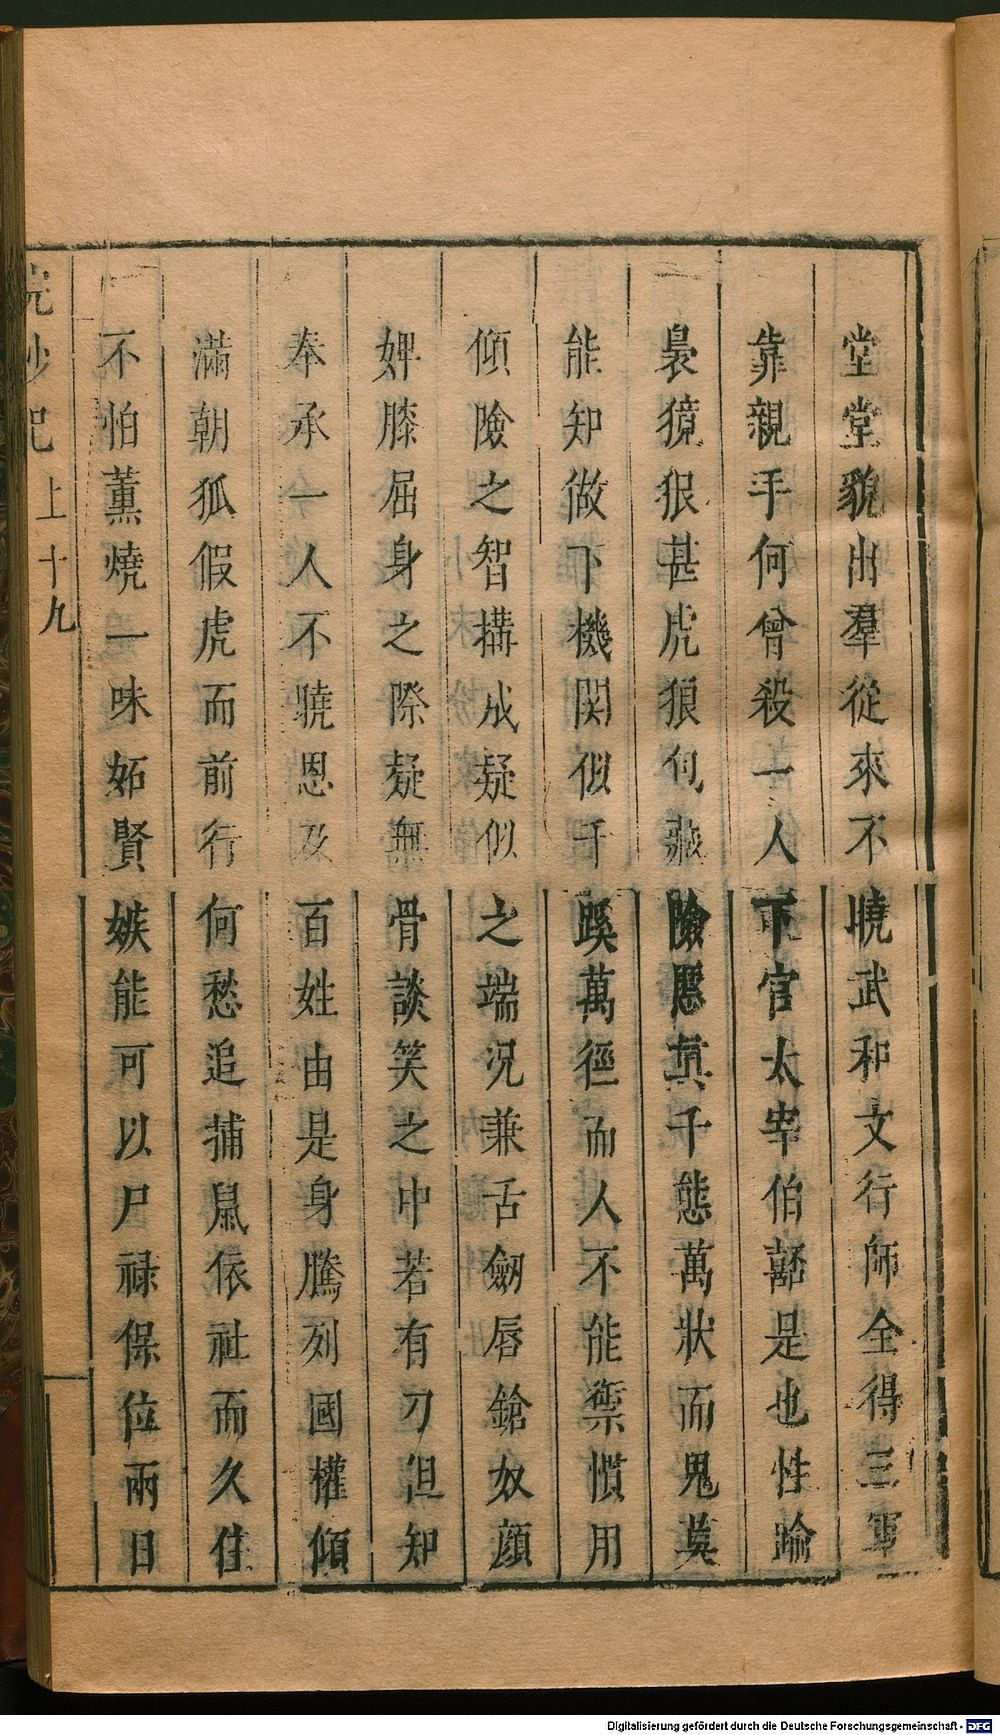 堂堂貌出羣從來不曉武和文行師全得三軍
靠親手何曾殺一人下官太宰伯嚭是也性踰
梟獍狠甚虎狼包藏險慝眞千態萬狀而鬼莫
能知做下機関似千蹊萬徑而人不能禦慣用
傾險之智搆成疑似之端况兼舌劒唇鎗奴顔
婢膝屈身之際疑無骨談笑之中若有刀但知
奉承一人不曉恩及百姓由是身騰列國權傾
滿朝狐假虎而前行何愁追捕鼠依社而久住
不怕薰燒一味妬賢嫉能可以尸禄保位兩日
浣紗記 上 十九
Digitalisierung gefördert durch die Deutsche Forschungsgemeinschaft - DFG